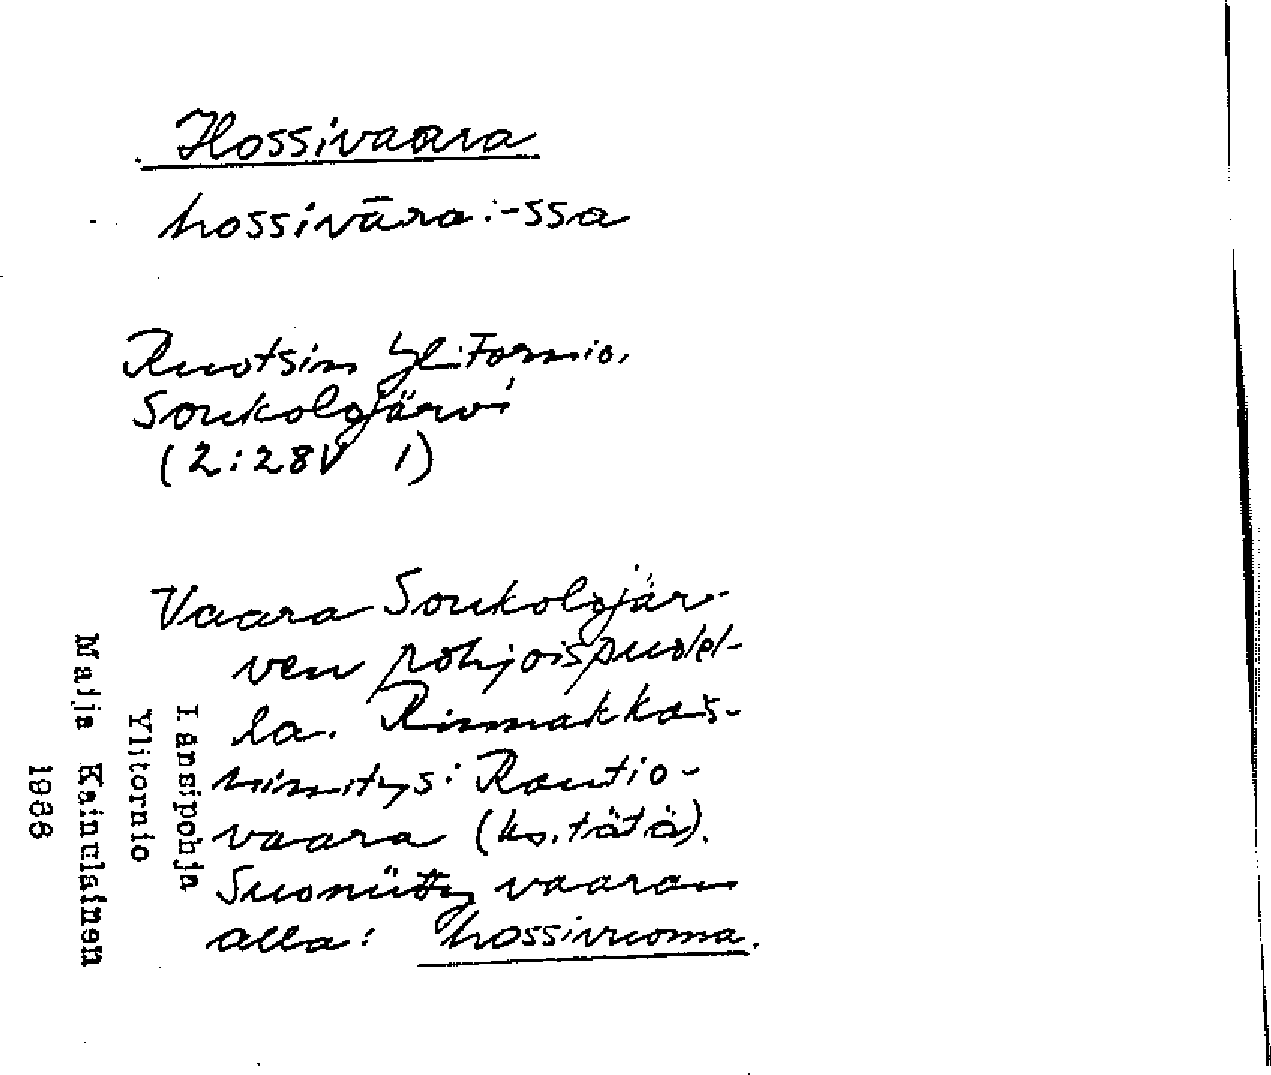 Hossivaara
hossivāra:-ssa
Ruotsin Ylitornio.
Soukolojärvi
(2:28V 1)
Vaara Soukolojär-
ven pohjoispuolel-
la. Rinnakkais-
nimitys: Rautio-
vaara (ks. tätä).
Suoniitty vaaran
alla: hossivuoma.
Länsipohja
Ylitornio
Maija Kainulainen
1966